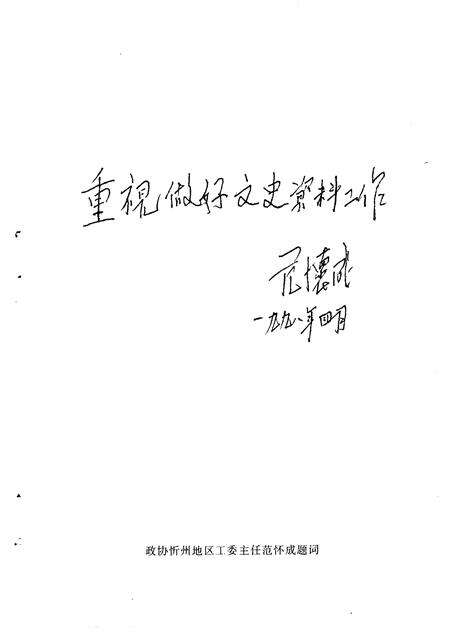 重視做好文史资料工作
范懷成
一九九一年四月
政协忻州地区工委主任范怀成题词